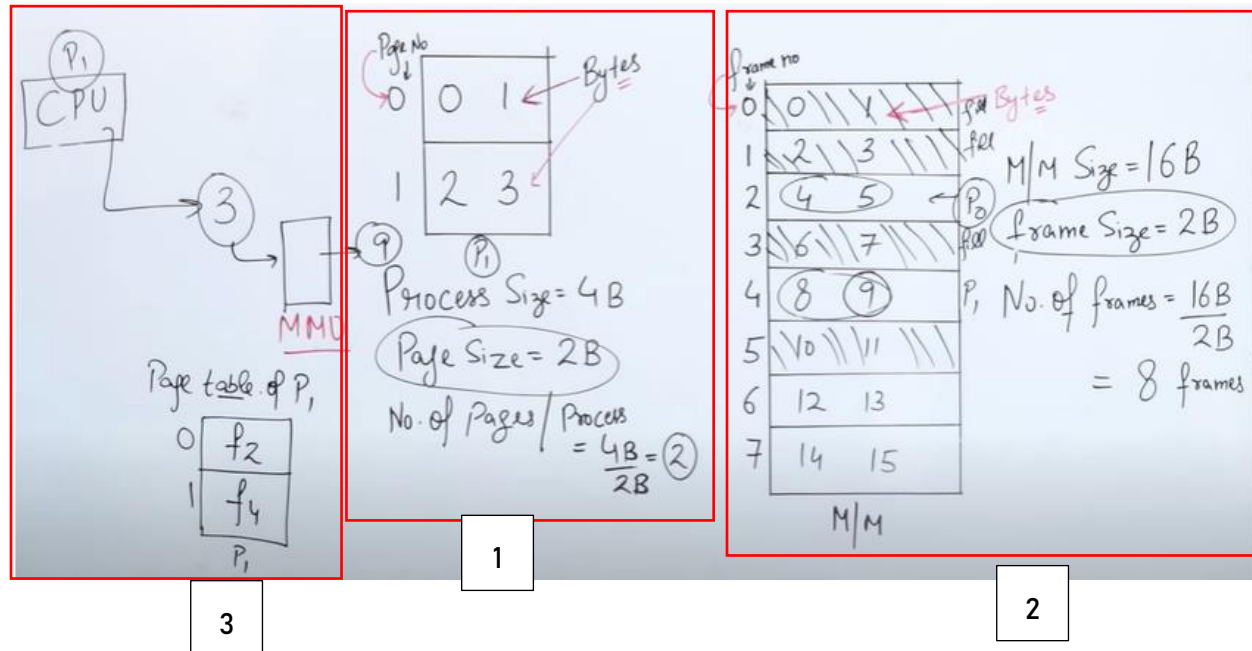 P1
CPU
3
MMU
9
Page table of P1
0 f2
1 f4
P1
3
Page No
0 0 1
Bytes
1 2 3
P1
Process Size = 4B
Page Size = 2B
No. of Pages/Process
= 4B/2B = 2
1
frame no
0 0 1 fill
Bytes
1 2 3 fill
2 4 5 P0
3 6 7 fill
4 8 9 P1
5 10 11
6 12 13
7 14 15
M/M
M/M Size = 16B
frame Size = 2B
No. of frames = 16B/2B
= 8 frames
2